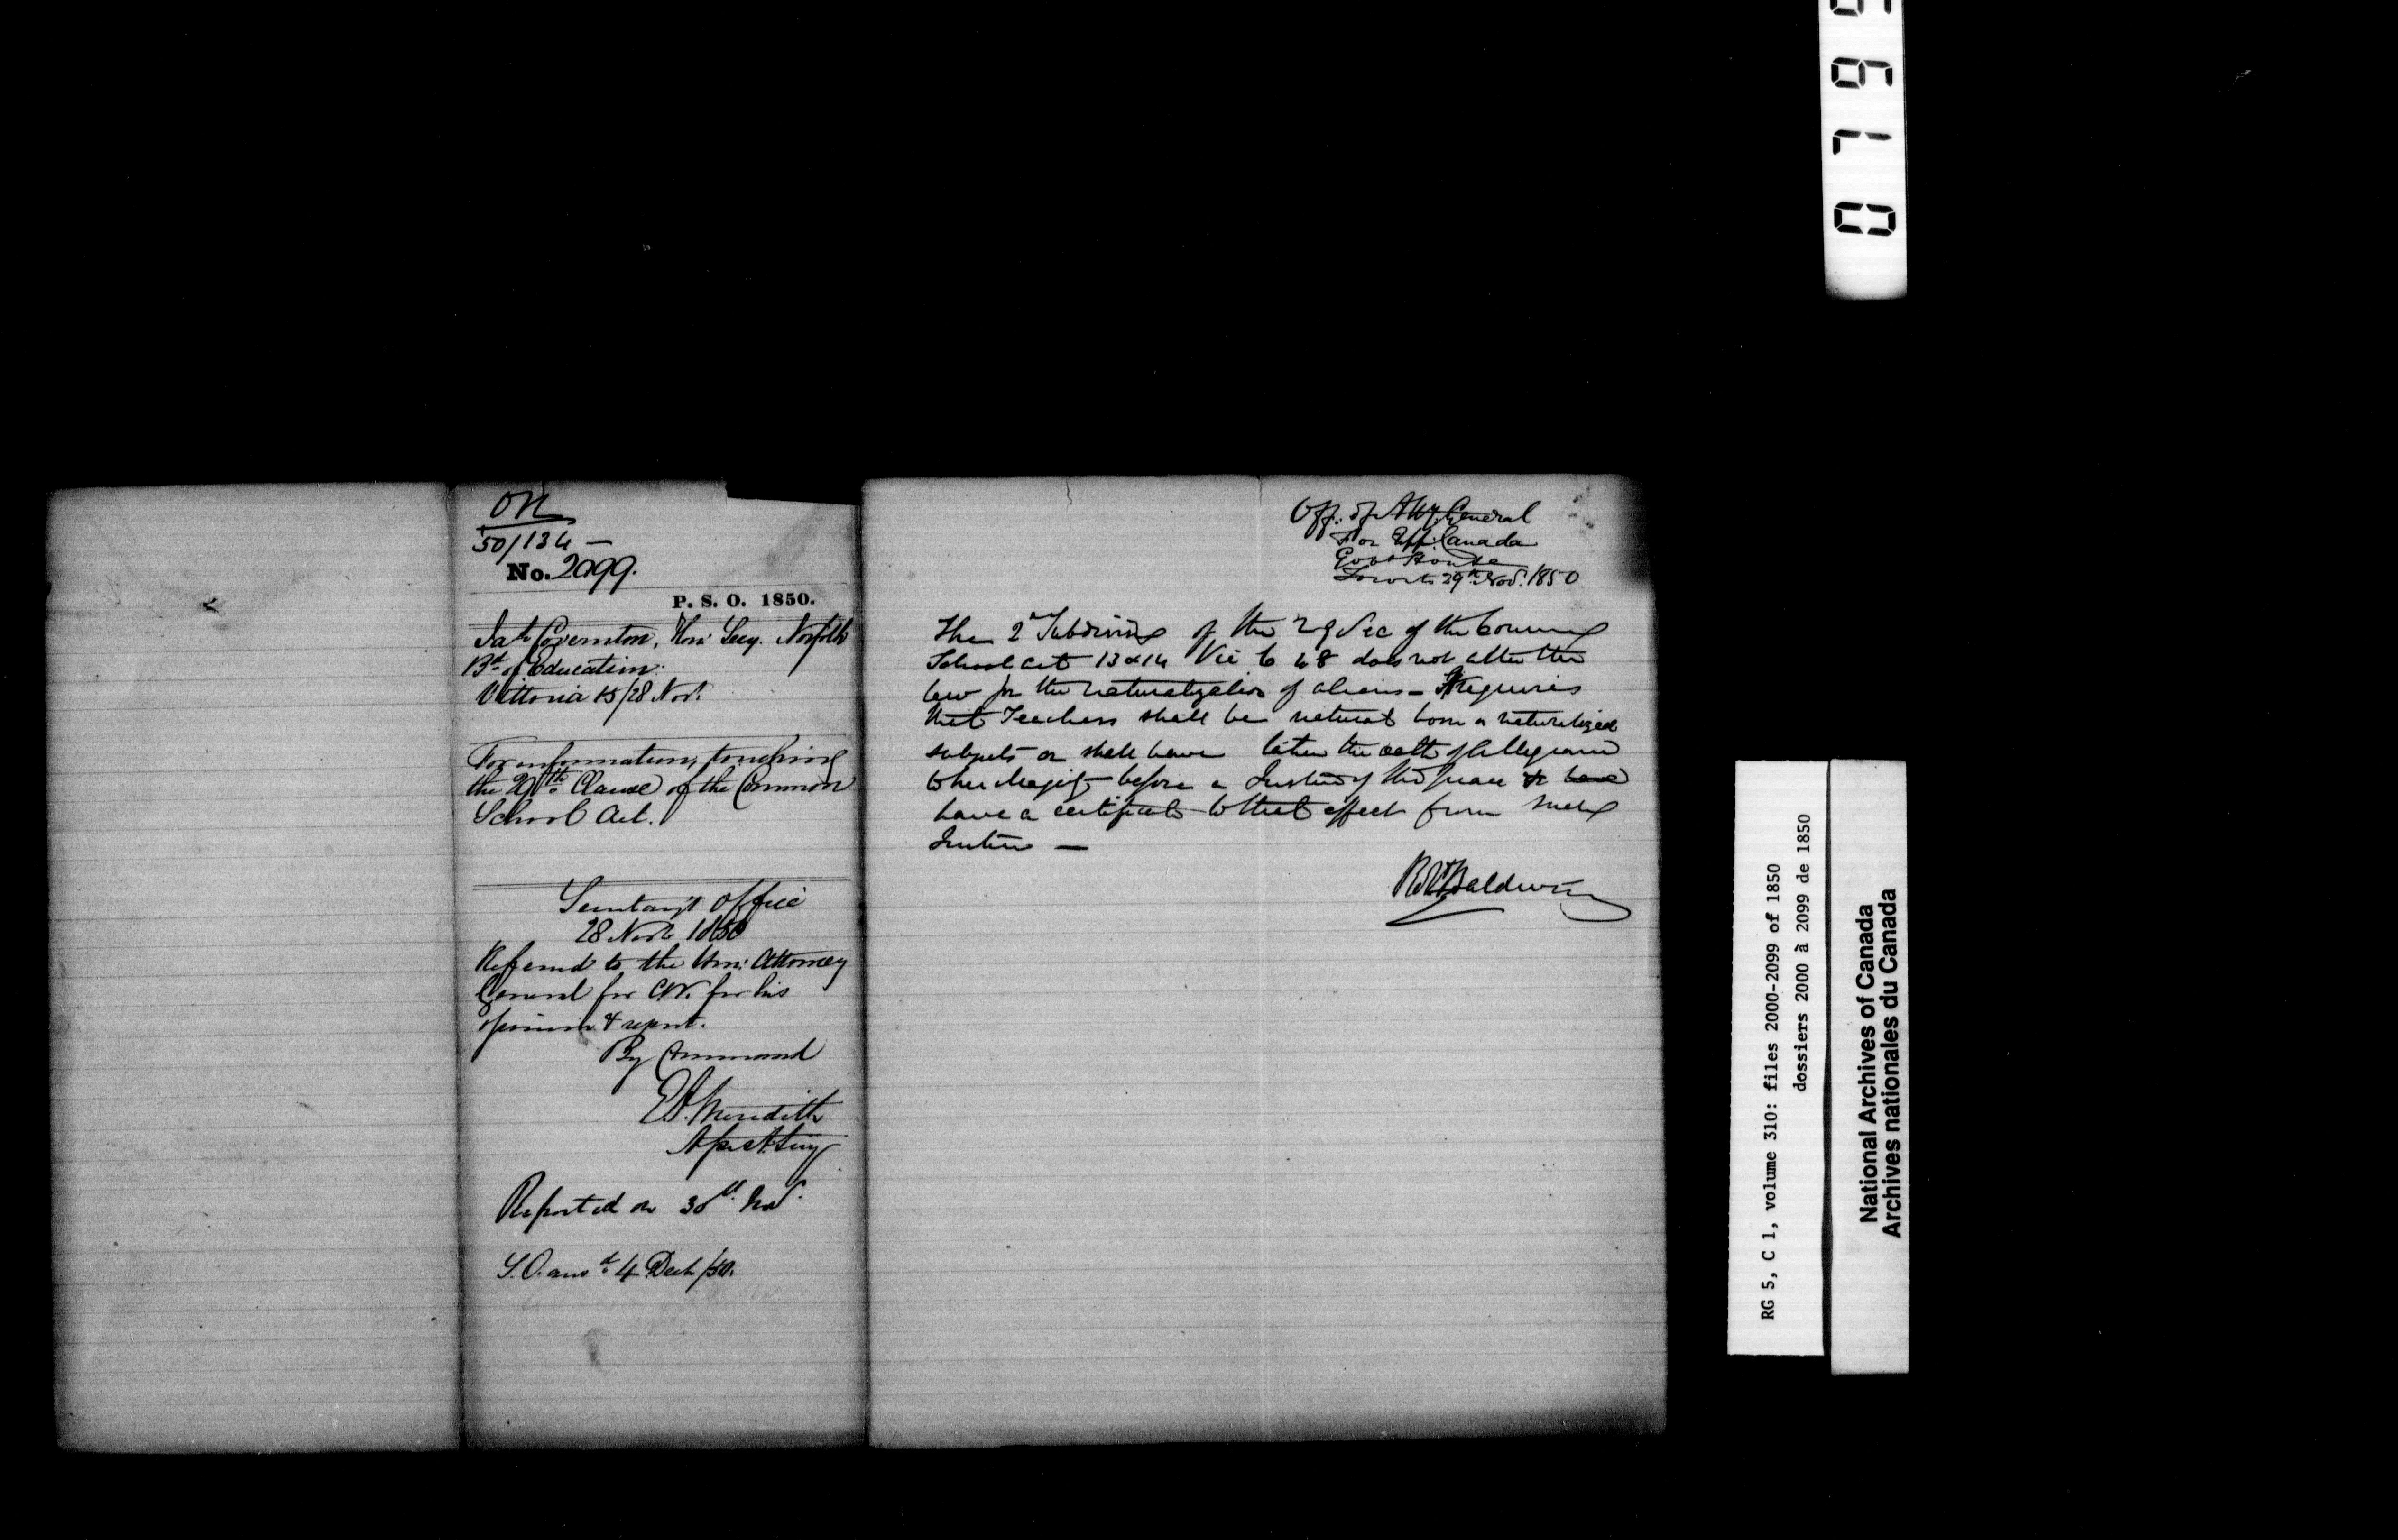 ON
50/134 —
No. 2099.
P. S. O. 1850.
Jas. Covernton, Hon: Secy. Norfolk
Bd. of Education.
Vittoria 15/28 Nov.
For information, touching
the 29th Clause of the Common
School Act.
Secretary's Office
28 Novb 1850
Referred to the Hon: Attorney
General for CW. for his
opinion & report.
By Command
E A. Meredith
Asst. Secy
Reported on 30th Nov.
S.O. ansd. 4 Decb/50.
Off. of Atty. General
For Upp. Canada
Govt House
Toronto 29th Nov. 1850
The 2d Subdivision of the 29 Sec of the Common
School Act 13 & 14 Vic C 48 does not alter the
law for the naturalization of aliens — It requires
that Teachers shall be natural born or naturalized
subjects or shall have taken the oath of allegiance
to her Majesty before a Justice of the peace & have
have a certificate to that effect from such
Justice —
Robt Baldwin
0 7 9
RG 5, C 1, volume 310: files 2000-2099 of 1850
dossiers 2000 à 2099 de 1850
National Archives of Canada
Archives nationales du Canada